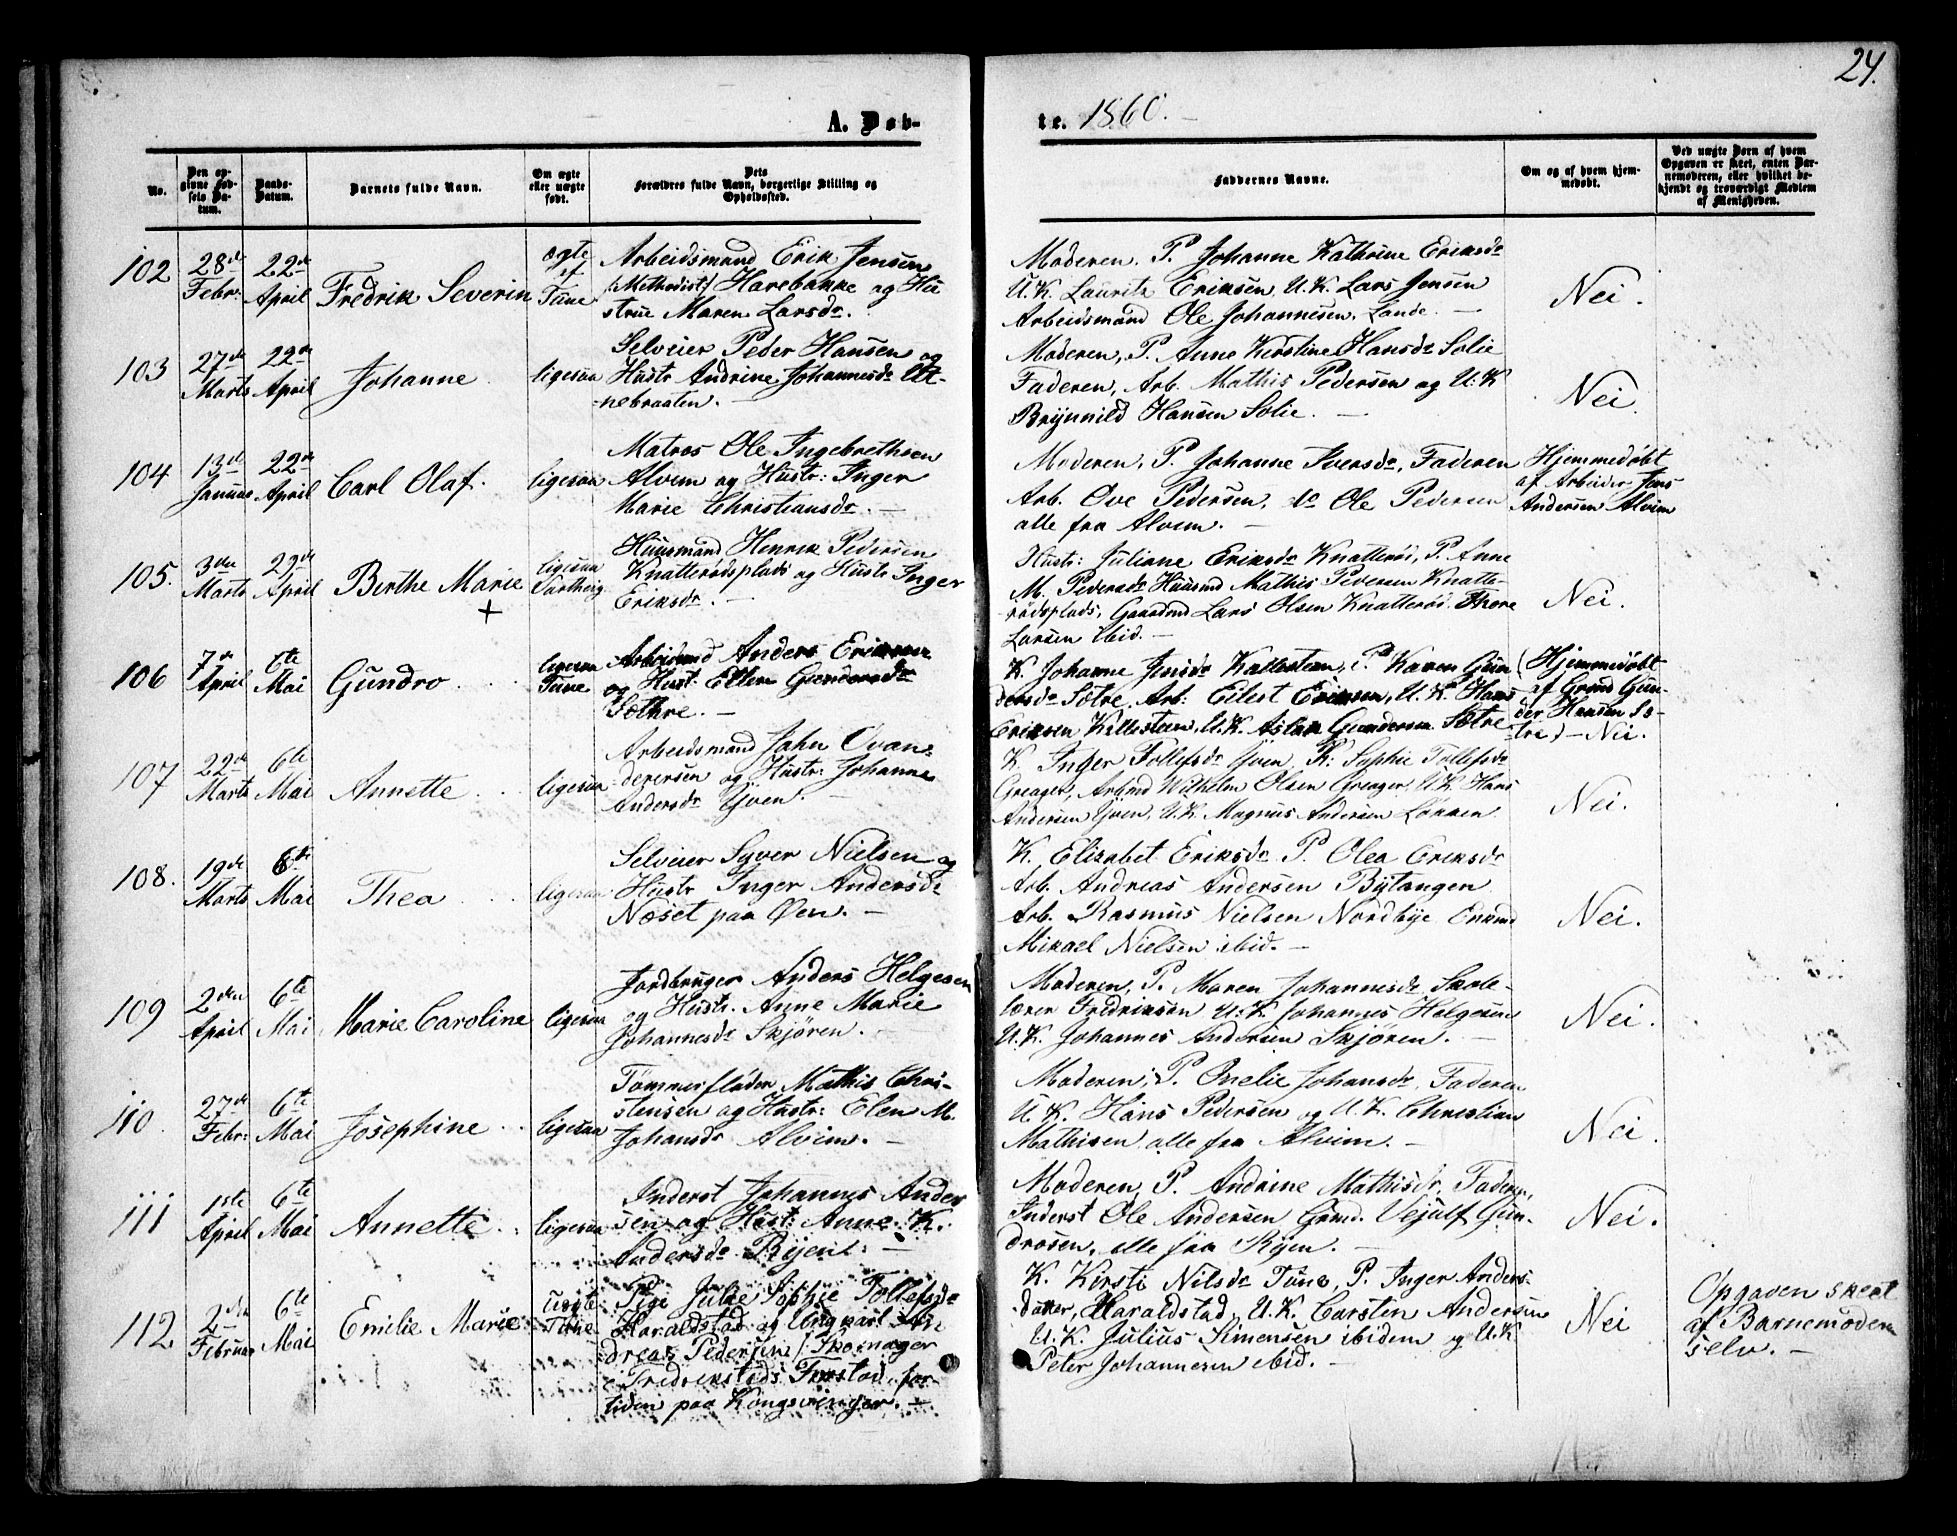 24.
A. Døb-
te. 1860.
No.
Den op-
givne Fød-
sels Da-
tum.
Daabs-
Datum.
Barnets fulde Navn.
Om ægte
eller uægte
født.
Dets
Forældres fulde Navn, borgerlige Stilling og
Opholdssted.
Faddernes Navne.
Om og af hvem hjem-
medøbt.
Ved uægte Børn af hvem
Opgaven er skeet, enten Bar-
nemoderen, eller hvilket be-
kjendt og troværdigt Medlem
af Menigheden.
102
28de
Febr:
22de
April
Fredrik Severin
ægte
af
Tune
Arbeidsmand Erik Jensen
(Methodist) Harebakke og Hu
strue Maren Larsdr.
Moderen, P. Johanne Kathrine Eriksdr
U.K. Lauritz Eriksen, U.K. Lars Jensen
Arbeidsmand Ole Johannesen, Lande. —
Nei.
103
27de
Marts
22de
April
Johanne
ligesaa
Selveier Peder Hansen og
Hustr Andrine Johannesdr Ut-
nebraaten. —
Moderen, P. Anne Kirstine Hansdr Solie
Faderen, Arb. Mathis Pedersen og U.K
Brynnild Hansen Solie. —
Nei.
104
13de
Januar
22de
April
Carl Olaf.
ligesaa
Matros Ole Ingebrethsen
Alvim og Hustr: Inger
Marie Christiansdr. —
Moderen, P. Johanne Iversdr, Faderen
Arb. Ove Pedersen, do Ole Pedersen
alle fra Alvim. —
Hjemmedøbt
af Arbeider Jens
Andersen Alvim
105.
3die
Marts
29de
April
Berthe Marie
+
ligesaa
Varteig
Huusmand Henrik Pedersen
Knatterødsplads og Hustr Inger
Eriksdr. —
Hustr: Juliane Eriksdr Knatterød, P. Anne
M. Pedersdr Huusmd Mathis Pedersen Knatte-
rødsplads, Gaardmd Lars Olsen Knatterød, Thore
Larsen ibid. —
Nei.
106
7de
April
6te
Mai
Gundro
ligesaa
Tune
Arbeidsmd Anders Eriksen
og Hust. Ellen Gundersdr
Sæthre. —
K. Johanne Jensdr Kallesteen, P. Karen Gun
dersdr Sætre, Arb: Eilest Eriksen, U.K. Hans
Eriksen Kallesteen, U.K. Aslak Gundersen Sætre
(Hjemmedøbt
af Grmd Gun-
der Hansen Sæ-
tre) — Nei.
107
22de
Marts
6te
Mai
Annette
ligesaa
Arbeidsmand John Ovan-
dersen og Hustr: Johanne
Andersdr Yven. —
K. Inger Tollefsdr Yven, K: Sophie Tollefsdr
Greager, Arbmd Wilhelm Olsen Greager, U.K. Hans
Andersen Yven, U.K. Magnus Andersen Løkken
Nei.
108.
19de
Marts
6te
Mai
Thea
ligesaa
Selveier Syver Nielsen og
Hustr Inger Andersdr
Næset paa Øen. —
K. Elisabet Eriksdr P. Olea Eriksdr
Arb. Andreas Andersen Bytangen
Arb. Rasmus Nielsen Nordbye Enkmd
Mikael Nielsen ibid. —
Nei.
109
2den
April
6te
Mai
Marie Caroline
ligesaa
Jordbruger Anders Helgesen
og Hustr. Anne Marie
Johannesdr Skjøren. —
Moderen, P. Maren Johannesdr, Skole-
lærer Fredriksen U.K. Johannes Helgesen
U.K. Johannes Andersen Skjøren. —
Nei.
110.
27de
Febr:
6te
Mai
Josephine
ligesaa
Tømmerfløder Mathis Chri-
stensen og Hustr: Elen M.
Johansdr Alvim. —
Moderen, P. Onelie Johansdr, Faderen
U.K. Hans Pedersen og U.K. Christian
Mathisen alle fra Alvim. —
Nei.
111
1ste
April
6te
Mai
Annette
ligesaa
Inderst Johannes Ander
sen og Hust: Anne K.
Andersdr Ryen: —
Moderen, P. Andrine Mathisdr, Faderen,
Inderst Ole Andersen, Grmd. Vejulf Gun-
drosen, alle fra Ryen. —
Nei.
112
2den
Februar
6te
Mai
Emilie Marie
uægte
Tune
Pige Julie Sophie Tollefsdr
Haraldstad og Ungkarl An
dreas Pedersen / Skomager
Fredrikstads Forstad, for
tiden paa Kongsvinger. —
K. Kirsti Nilsdr Tune, P. Inger Anders-
datter, Haraldstad, U.K. Carsten Andersen
U.K. Julius Simensen ibidem og U.K
Peter Johannesen ibid. —
Nei
Opgaven skeet
af Barnemoderen
selv. —